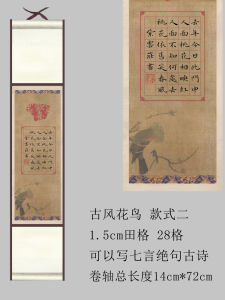 去年今日此門中
人面桃花相映紅
人面不知何處去
桃花依舊笑春風
古风花鸟 款式二
1.5cm田格 28格
可以写七言绝句古诗
卷轴总长度14cm*72cm